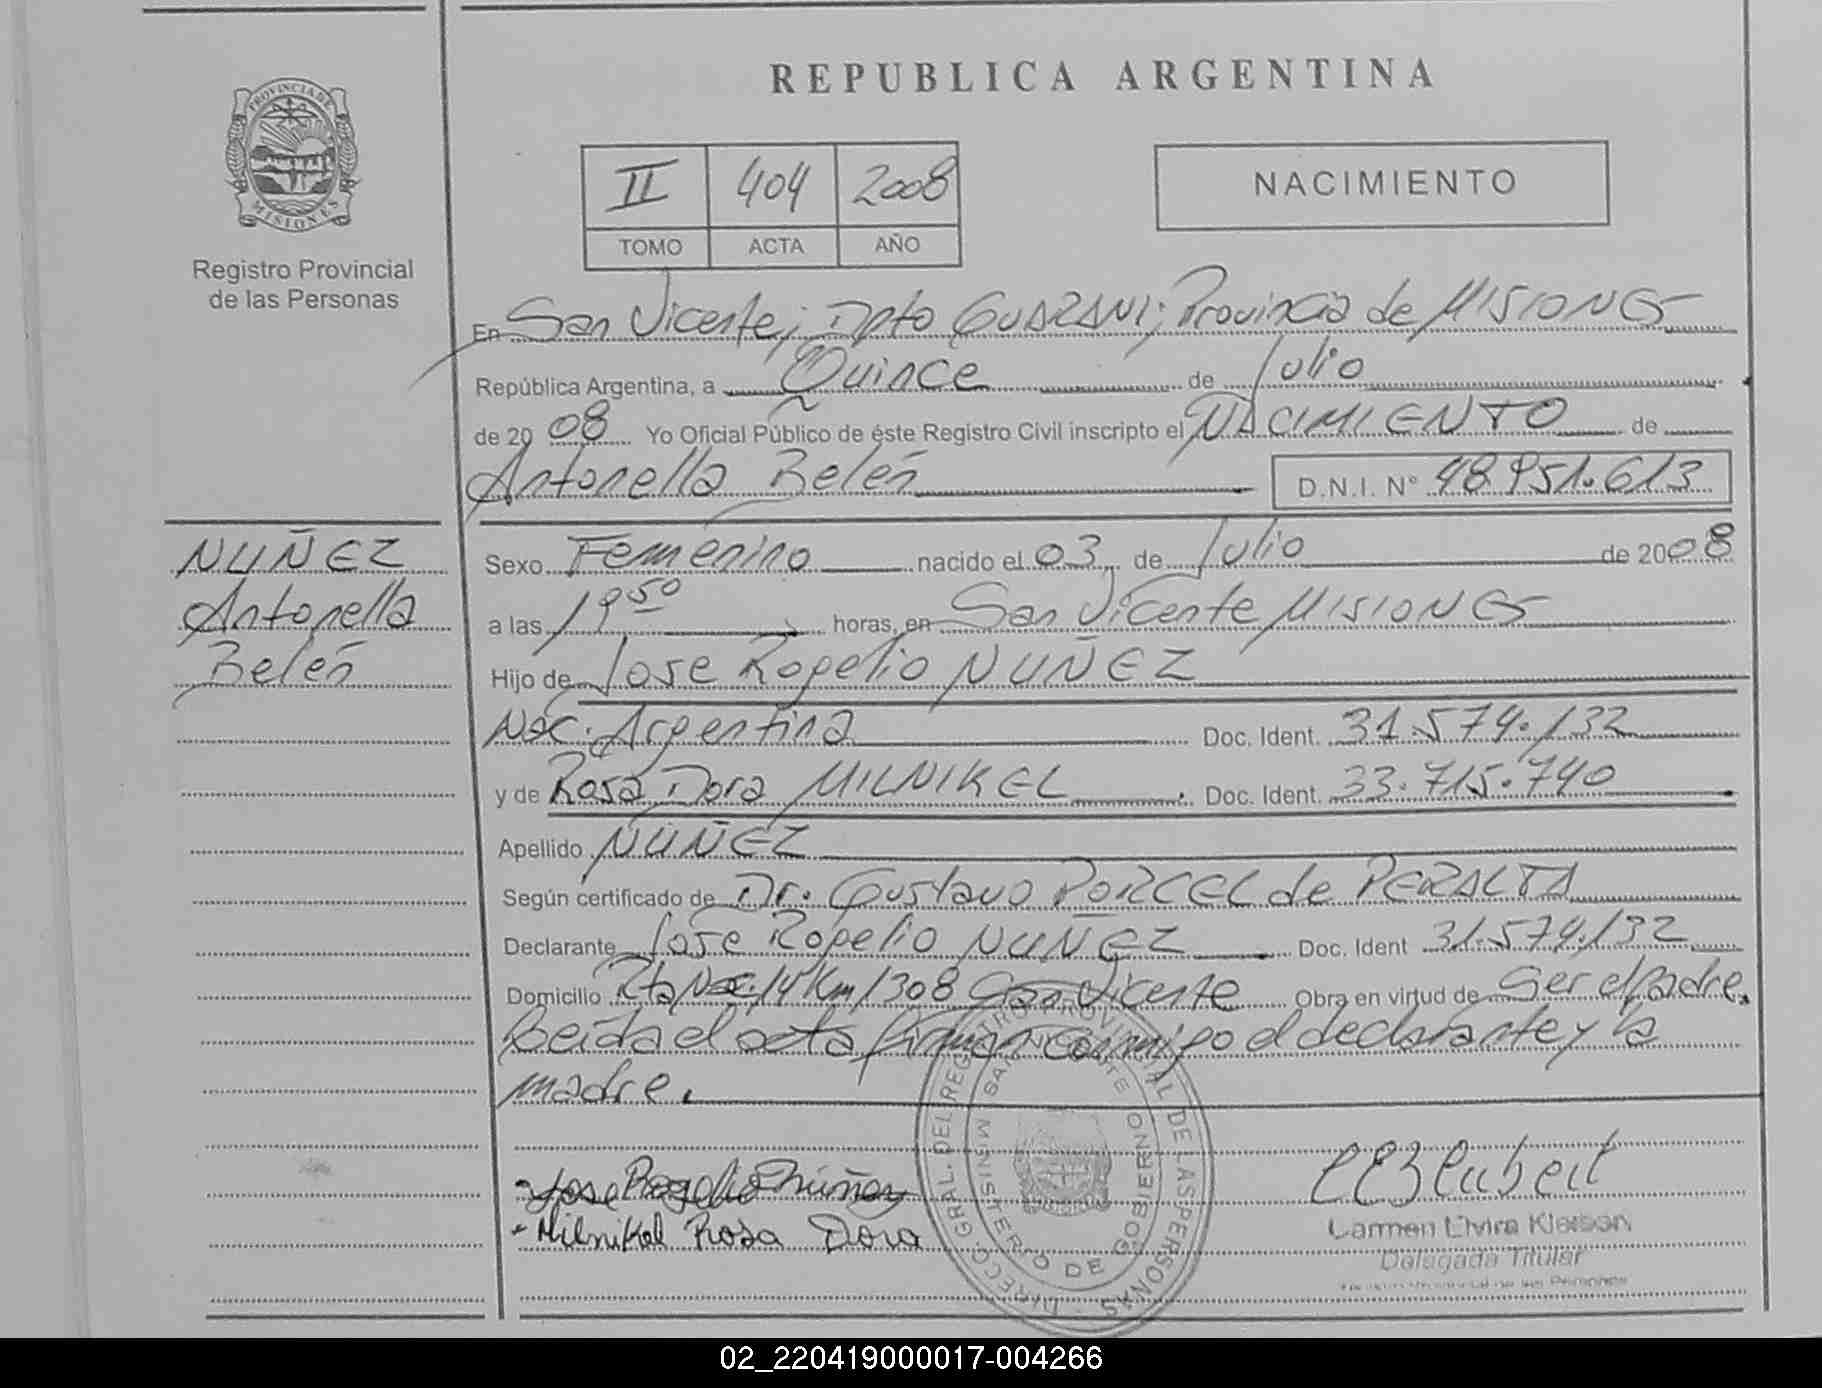 REPUBLICA ARGENTINA
PROVINCIA DE
MISIONES
Registro Provincial
de las Personas
II 404 2008
TOMO ACTA AÑO
NACIMIENTO
En San Vicente; Dpto GUARANI; Provincia de MISIONES
República Argentina, a Quince de Julio
de 2008 Yo Oficial Público de éste Registro Civil inscripto el NACIMIENTO de
Antonella Belén D.N.I. N° 48.951.613
NUÑEZ
Antonella
Belén
Sexo Femenino nacido el 03 de Julio de 2008
a las 19 50 horas, en San Vicente MISIONES
Hijo de Jose Rogelio NUÑEZ
Nac. Argentina Doc. Ident. 31.574.132
y de Rosa Dora MILNIKEL Doc. Ident. 33.715.740
Apellido NUÑEZ
Según certificado de Dr. Gustavo PORCEL de PERALTA
Declarante Jose Rogelio NUÑEZ Doc. Ident 31.574.132
Domicilio Rta Nac. 14 Km 1308 San Vicente Obra en virtud de Ser el padre.
Leida el acta firman conmigo el declarante y la
madre.
Jose Rogelio Núñez
Milnikel Rosa Dora
DIRECC. GRAL. DEL REGISTRO PROVINCIAL DE LAS PERSONAS
MINISTERIO DE GOBIERNO
SAN VICENTE
Carmen Elvira
Delegada Titular
02_220419000017-004266